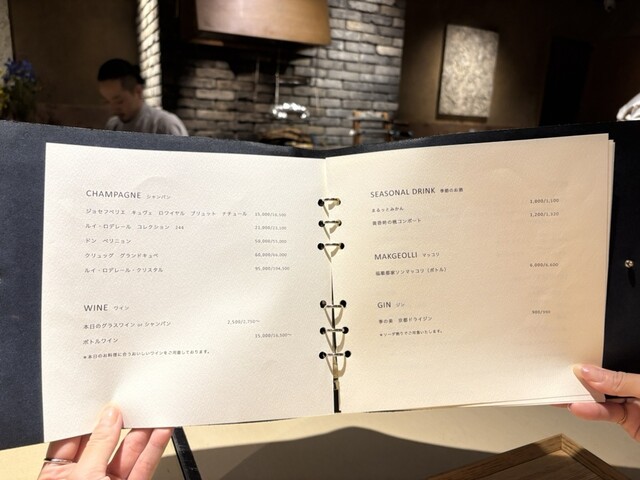 CHAMPAGNE シャンパン
ジョセフペリエ キュヴェ ロワイヤル ブリュット ナチュール 15,000/16,500
ルイ・ロデレール コレクション 21,000/23,100
ドン ペリニョン
クリュッグ グランドキュベ 60,000/66,000
ルイ・ロデレール・クリスタル 95,000/104,500
WINE ワイン
本日のグラスワイン or シャンパン 2,500/2,750〜
ボトルワイン 15,000/16,500〜
*本日のお料理に合うおいしいワインをご用意しております。
SEASONAL DRINK 季節のお酒
まるっとみかん 1,000/1,100
桃コンポート
MAKGEOLLI マッコリ
福順都家ソンマッコリ【ボトル】 6,000/6,600
GIN ジン
季の美 京都ドライジン 900/990
*ソーダ割りでご用意いたします。